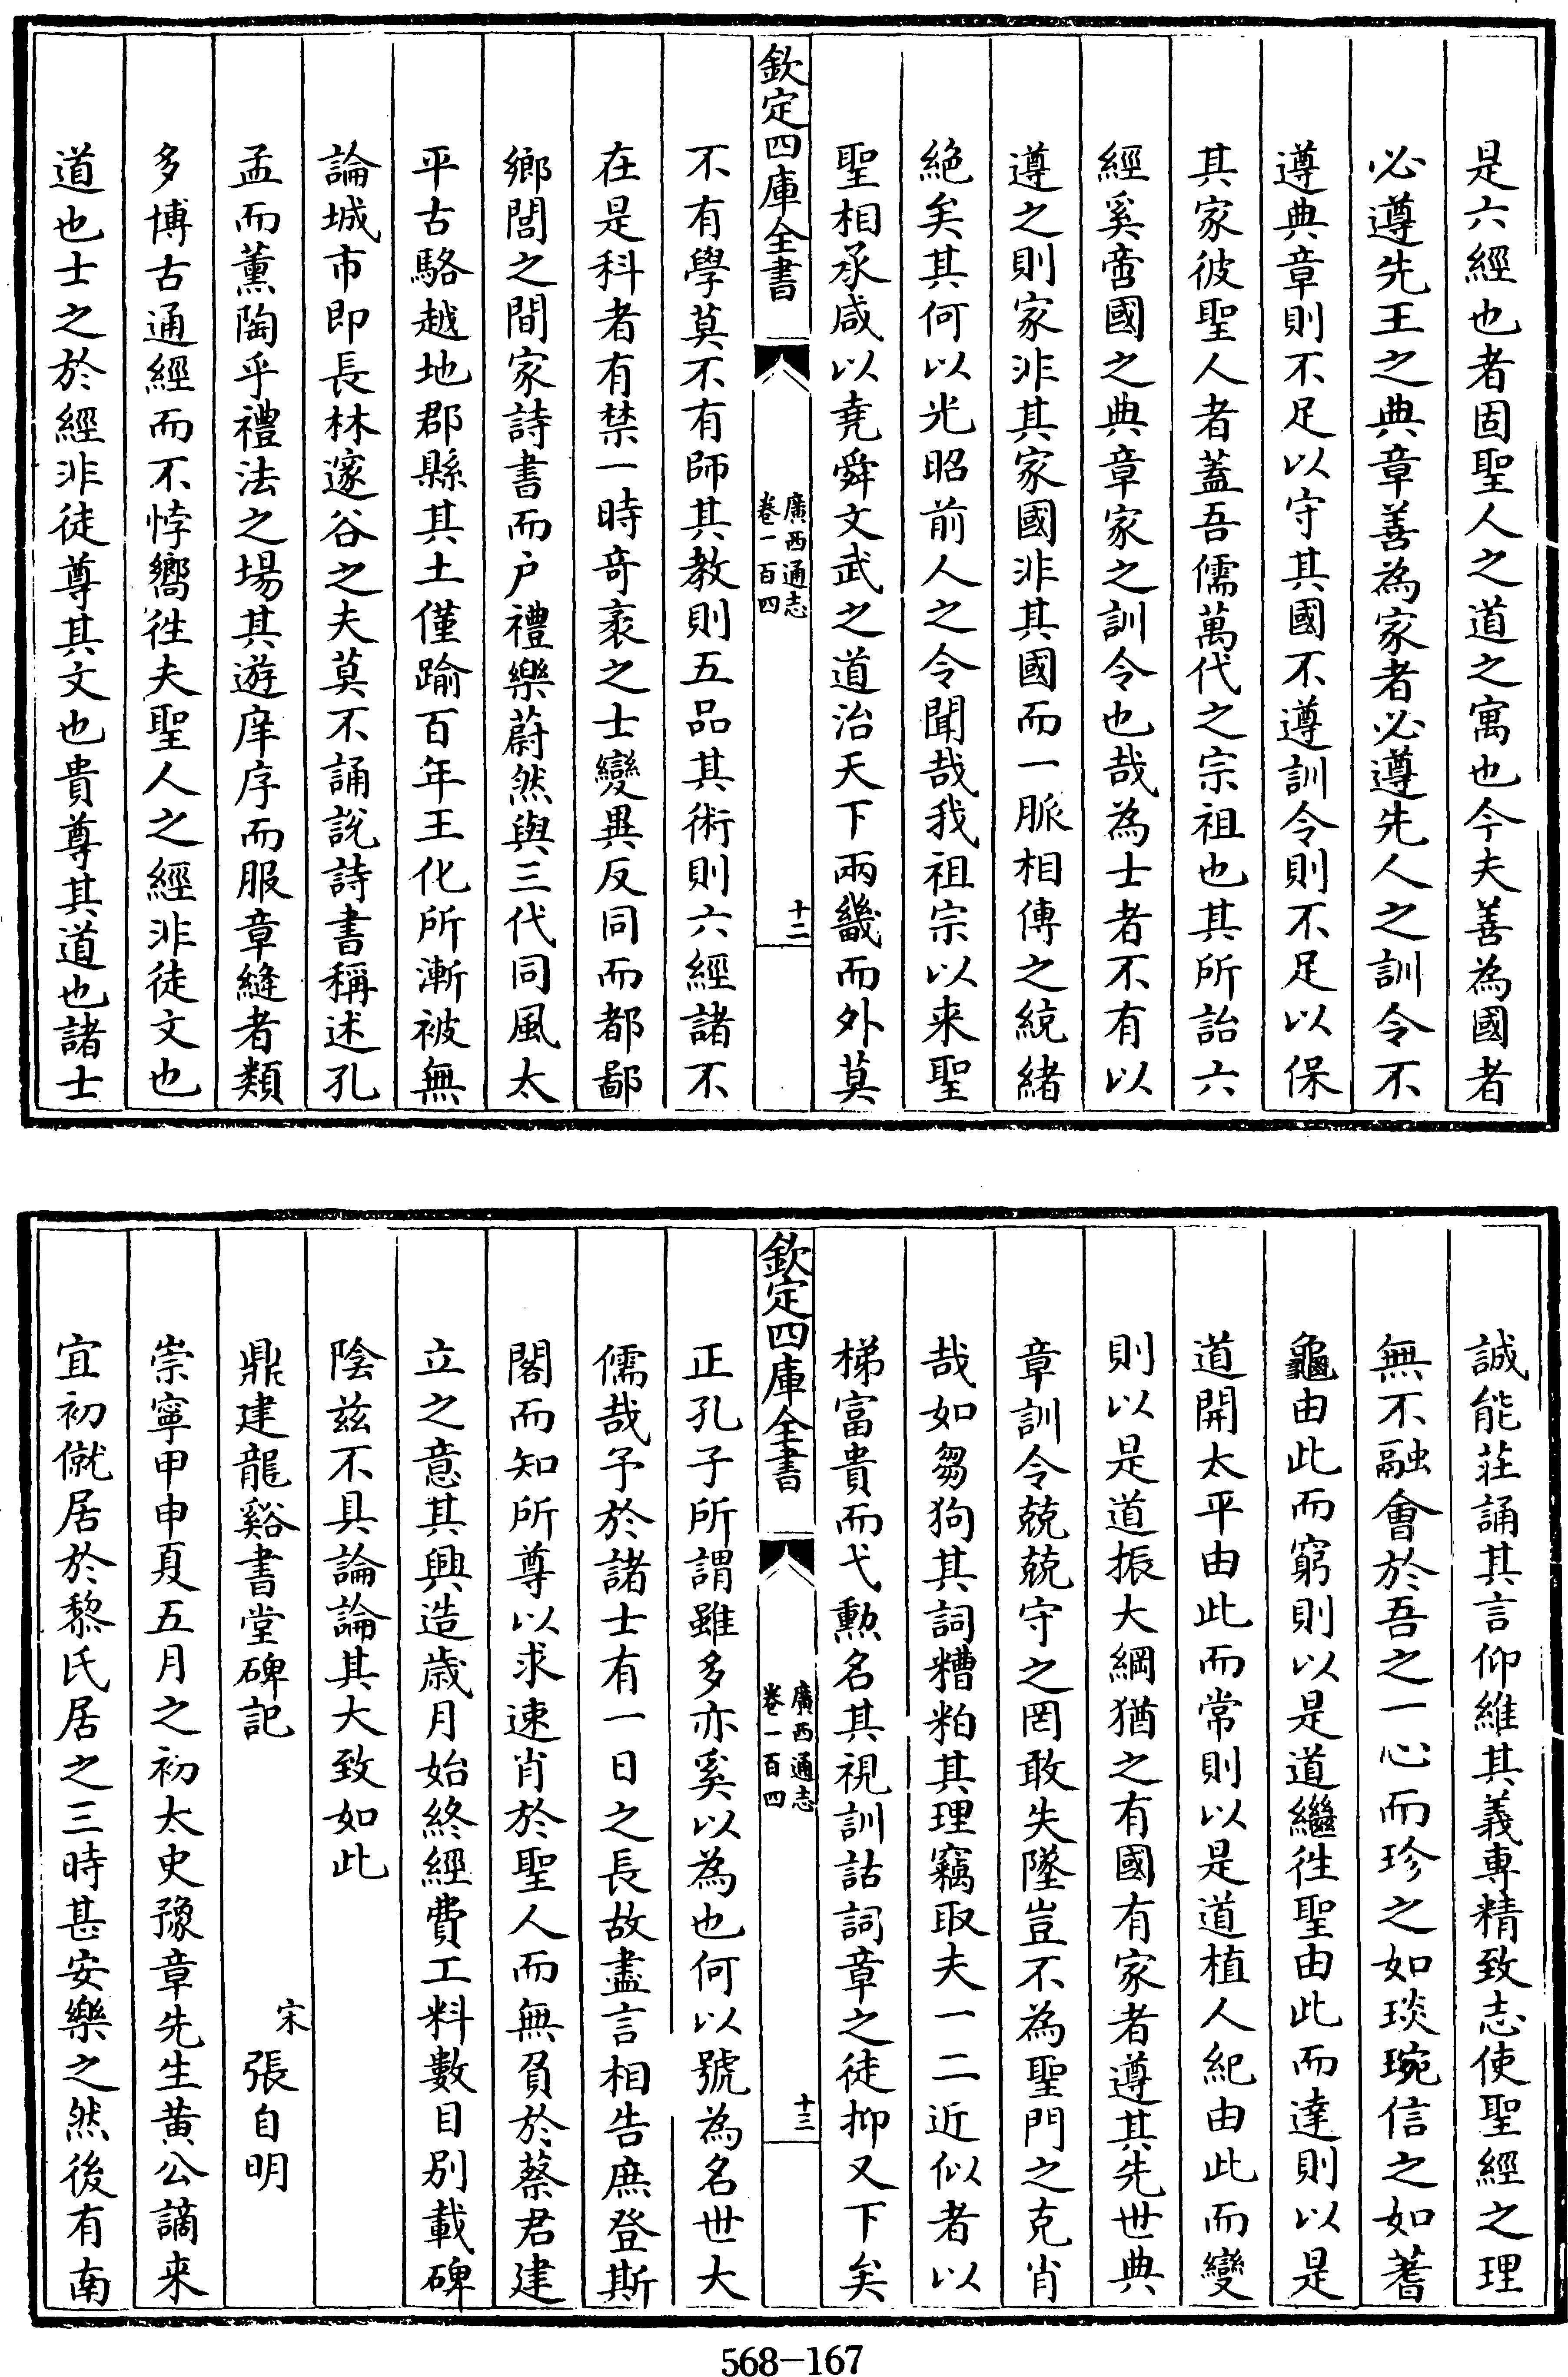 是六經也者固聖人之道之寓也今夫善為國者
必遵先王之典章善為家者必遵先人之訓令不
遵典章則不足以守其國不遵訓令則不足以保
其家彼聖人者蓋吾儒萬代之宗祖也其所詒六
經奚啻國之典章家之訓令也哉為士者不有以
遵之則家非其家國非其國而一脈相傳之統緒
絶矣其何以光昭前人之令聞哉我祖宗以来聖
聖相承咸以堯舜文武之道治天下兩畿而外莫
欽定四庫全書
廣西通志
卷一百四
十二
不有學莫不有師其教則五品其術則六經諸不
在是科者有禁一時竒衺之士變異反同而都鄙
鄉閭之間家詩書而户禮樂蔚然與三代同風太
平古駱越地郡縣其土僅踰百年王化所漸被無
論城市即長林邃谷之夫莫不誦說詩書稱述孔
孟而薰陶乎禮法之場其遊庠序而服章縫者類
多博古通經而不悖嚮徃夫聖人之經非徒文也
道也士之於經非徒尊其文也貴尊其道也諸士
誠能莊誦其言仰維其義專精致志使聖經之理
無不融會於吾之一心而珍之如琰琬信之如蓍
龜由此而窮則以是道繼徃聖由此而達則以是
道開太平由此而常則以是道植人紀由此而變
則以是道振大綱猶之有國有家者遵其先世典
章訓令兢兢守之罔敢失墜豈不為聖門之克肖
哉如芻狗其詞糟粕其理竊取夫一二近似者以
梯富貴而弋勲名其視訓詁詞章之徒抑又下矣
欽定四庫全書
廣西通志
卷一百四
十三
正孔子所謂雖多亦奚以為也何以號為名世大
儒哉予於諸士有一日之長故盡言相告庶登斯
閣而知所尊以求速肖於聖人而無負於蔡君建
立之意其興造歲月始終經費工料數目别載碑
陰兹不具論論其大致如此
鼎建龍谿書堂碑記
宋張自明
崇寧甲申夏五月之初太史豫章先生黄公謫来
宜初僦居於黎氏居之三時甚安樂之然後有南
568-167